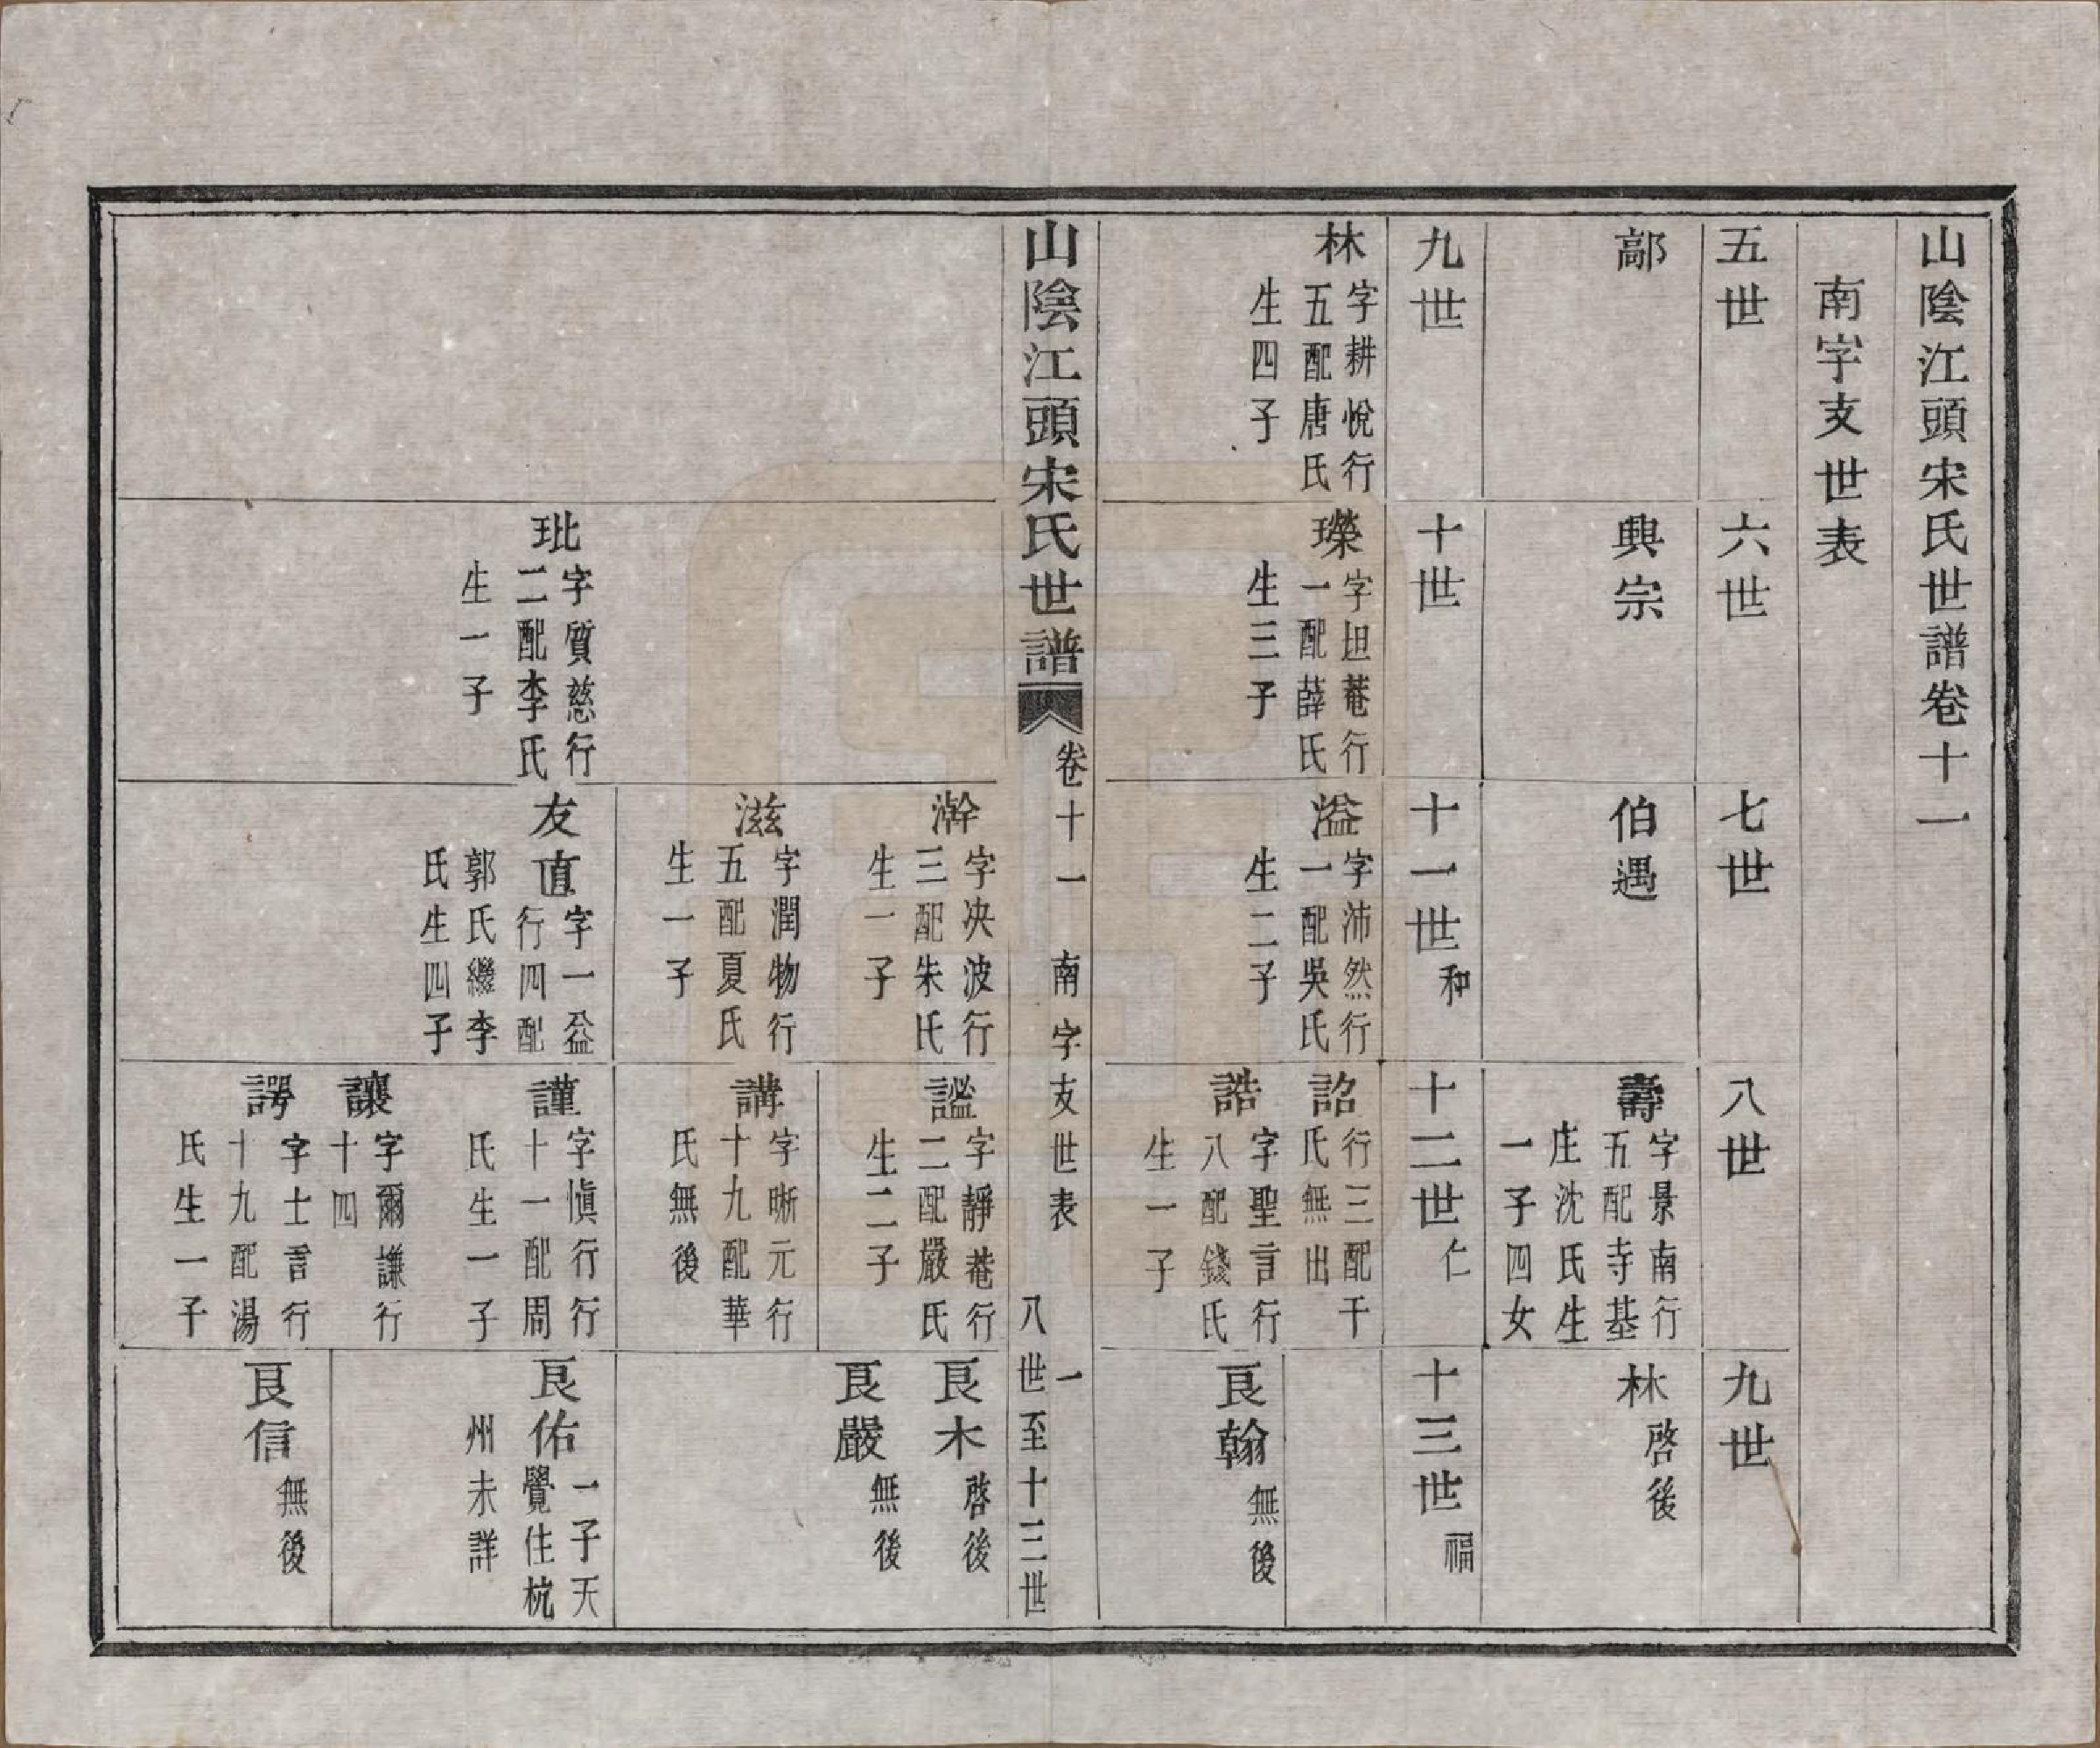 山陰江頭宋氏世譜卷十一
南字支世表
五世
六世
七世
八世
九世
鄗
興宗
伯遇
壽
字景南行
五配寺基
庄沈氏生
一子四女
林
啓後
九世
十世
十一世和
十二世仁
十三世福
林
字耕悅行
五配唐氏
生四子
字坦菴行
一配薛氏
生三子
溢
字沛然行
一配吳氏
生二子
詔
行三配干
氏無出
誥
字聖言行
八配錢氏
生一子
良翰
無後
山陰江頭宋氏世譜
卷十一
南字支世表
八世至十三世
一
澣
字决波行
三配朱氏
生一子
謐
字靜菴行
二配嚴氏
生二子
良木
啓後
良嚴
無後
滋
字潤物行
五配夏氏
生一子
講
字晰元行
十九配華
氏無後
玭
字質慈行
二配李氏
生一子
友直
字一益
行四配
郭氏繼李
氏生四子
謹
字愼行行
十一配周
氏生一子
良佑
一子天
覺住杭
州未詳
讓
字爾謙行
十四
諤
字士言行
十九配湯
氏生一子
良信
無後